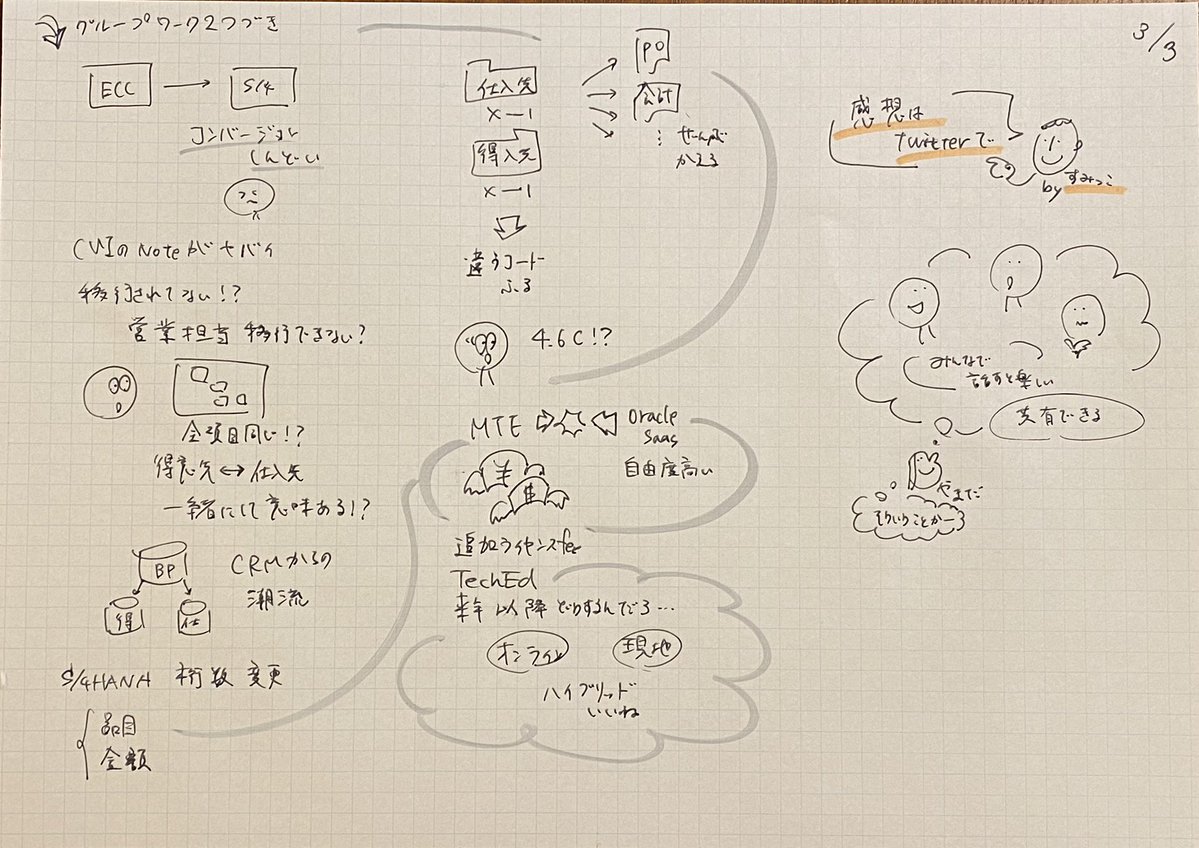 グループワーク2つづき
3/3
ECC
S/4
コンバージョン
しんどい
CVIのNoteがヤバイ
移行されてない!?
営業担当 移行できない?
全項目同じ!?
得意先↔仕入先
一緒にして意味ある!?
BP
得
仕
CRMからの
潮流
S/4HANA 桁数変更
品目
金額
仕入先
X-1
得入先
X-1
違うコード
ふる
PO
会計
ぜんぶ
かえる
4.6C!?
MTE
Oracle
SaaS
自由度高い
追加ライセンスfee
TechEd
来年以降どうするんだろ…
オンライン
現地
ハイブリッド
いいね
感想は
twitterで
by すみっこ
みんなで
話すと楽しい
共有できる
やまだ
そういうことかー